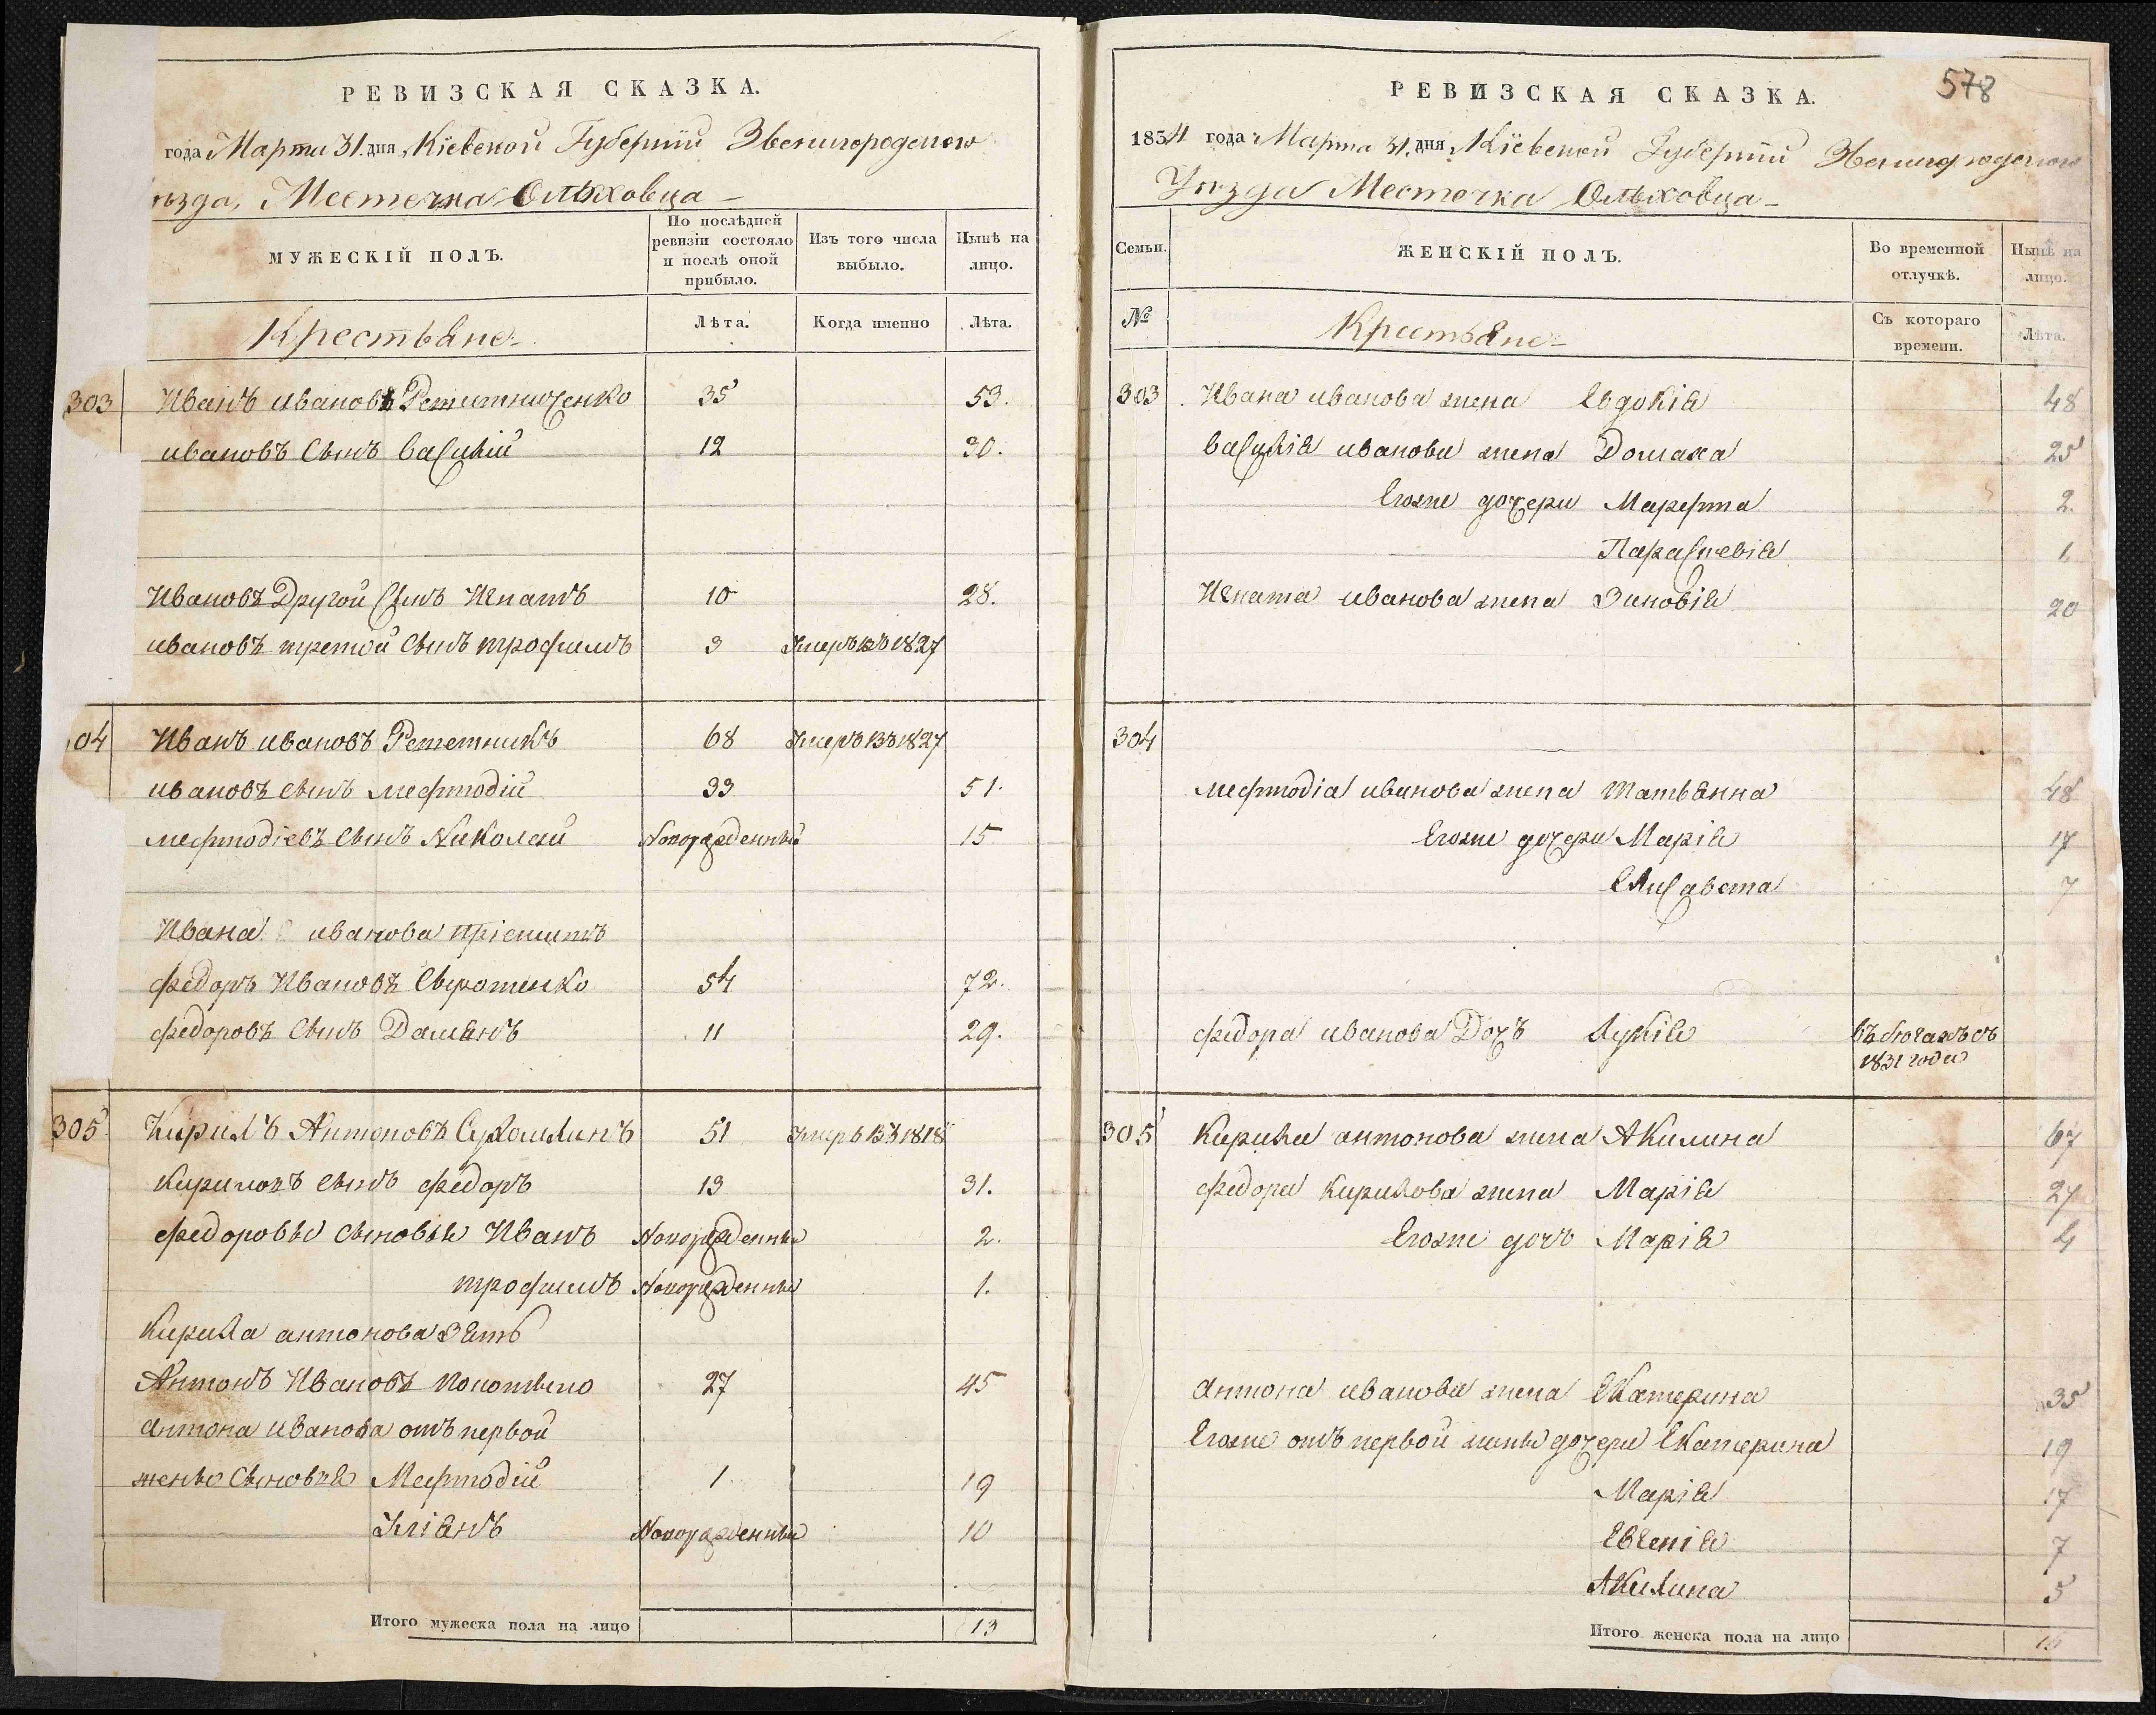 РЕВИЗСКАЯ СКАЗКА.
года Марта 31 дня Кіевской Губерніи Звенигородского
ѣзда, Местечка Ольховца
МУЖЕСКІЙ ПОЛЪ.
По послѣдней ревизіи состояло и послѣ оной прибыло.
Изъ того числа выбыло.
Нынѣ на лицо.
Крестьяне
Лѣта.
Когда именно
Лѣта.
303 Иванъ ивановъ Решетниченко 35 53.
ивановъ сынъ василій 12 30.
Ивановъ Другой сынъ Игнатъ 10 28.
ивановъ третой сынъ трофимъ 3 Умеръ въ 1827
04 Иванъ ивановъ Решетникъ 68 Умеръ въ 1827
ивановъ сынъ мефтодій 33 51.
мефтодіевъ сынъ Николай Новорожденный 15
Ивана иванова пріемитъ
федоръ Ивановъ Сыротенко 54 72.
федоровъ сынъ Дамянъ 11 29.
305 Кирилъ Антоновъ Сухомлинъ 51 Умеръ въ 1818
Кириловъ сынъ федоръ 13 31.
федоровы сыновья Иванъ Новорожденны 2.
трофимъ Новорожденны 1.
Кирила антонова зять
Антонъ Ивановъ 27 45
антона иванова отъ первой
жены сыновья Мефтодій 1 19
Уліянъ Новорожденны 10
Итого мужеска пола на лицо 13
РЕВИЗСКАЯ СКАЗКА.
578
1834 года Марта 31 дня Кіевской Губерніи Звенигородского
Уѣзда Местечка Ольховца
Семьи.
ЖЕНСКІЙ ПОЛЪ.
Во временной отлучкѣ.
Нынѣ на лицо.
№
Крестьяне
Съ котораго времени.
Лѣта.
303 Ивана иванова жена Евдокія 48
василія иванова жена Домаха 25
Егоже дочери Марфта 2.
Параскевія 1
Игната иванова жена Зиновія 20
304
мефтодіа иванова жена татьянна 48
Егоже дочери Марія 17
Елисавета 7
федора иванова Дочъ Лукія въ бегахъ съ
1831 года
305 Кирила антонова жена Акилина 67
федора Кирилова жена Марія 27
Егоже дочъ Марія 4
антона иванова жена Екатерина 35
Егоже отъ первой жены дочери Екатерина 19
Марія 17
Евгенія 7
Акилина 5
Итого женска пола на лицо 16